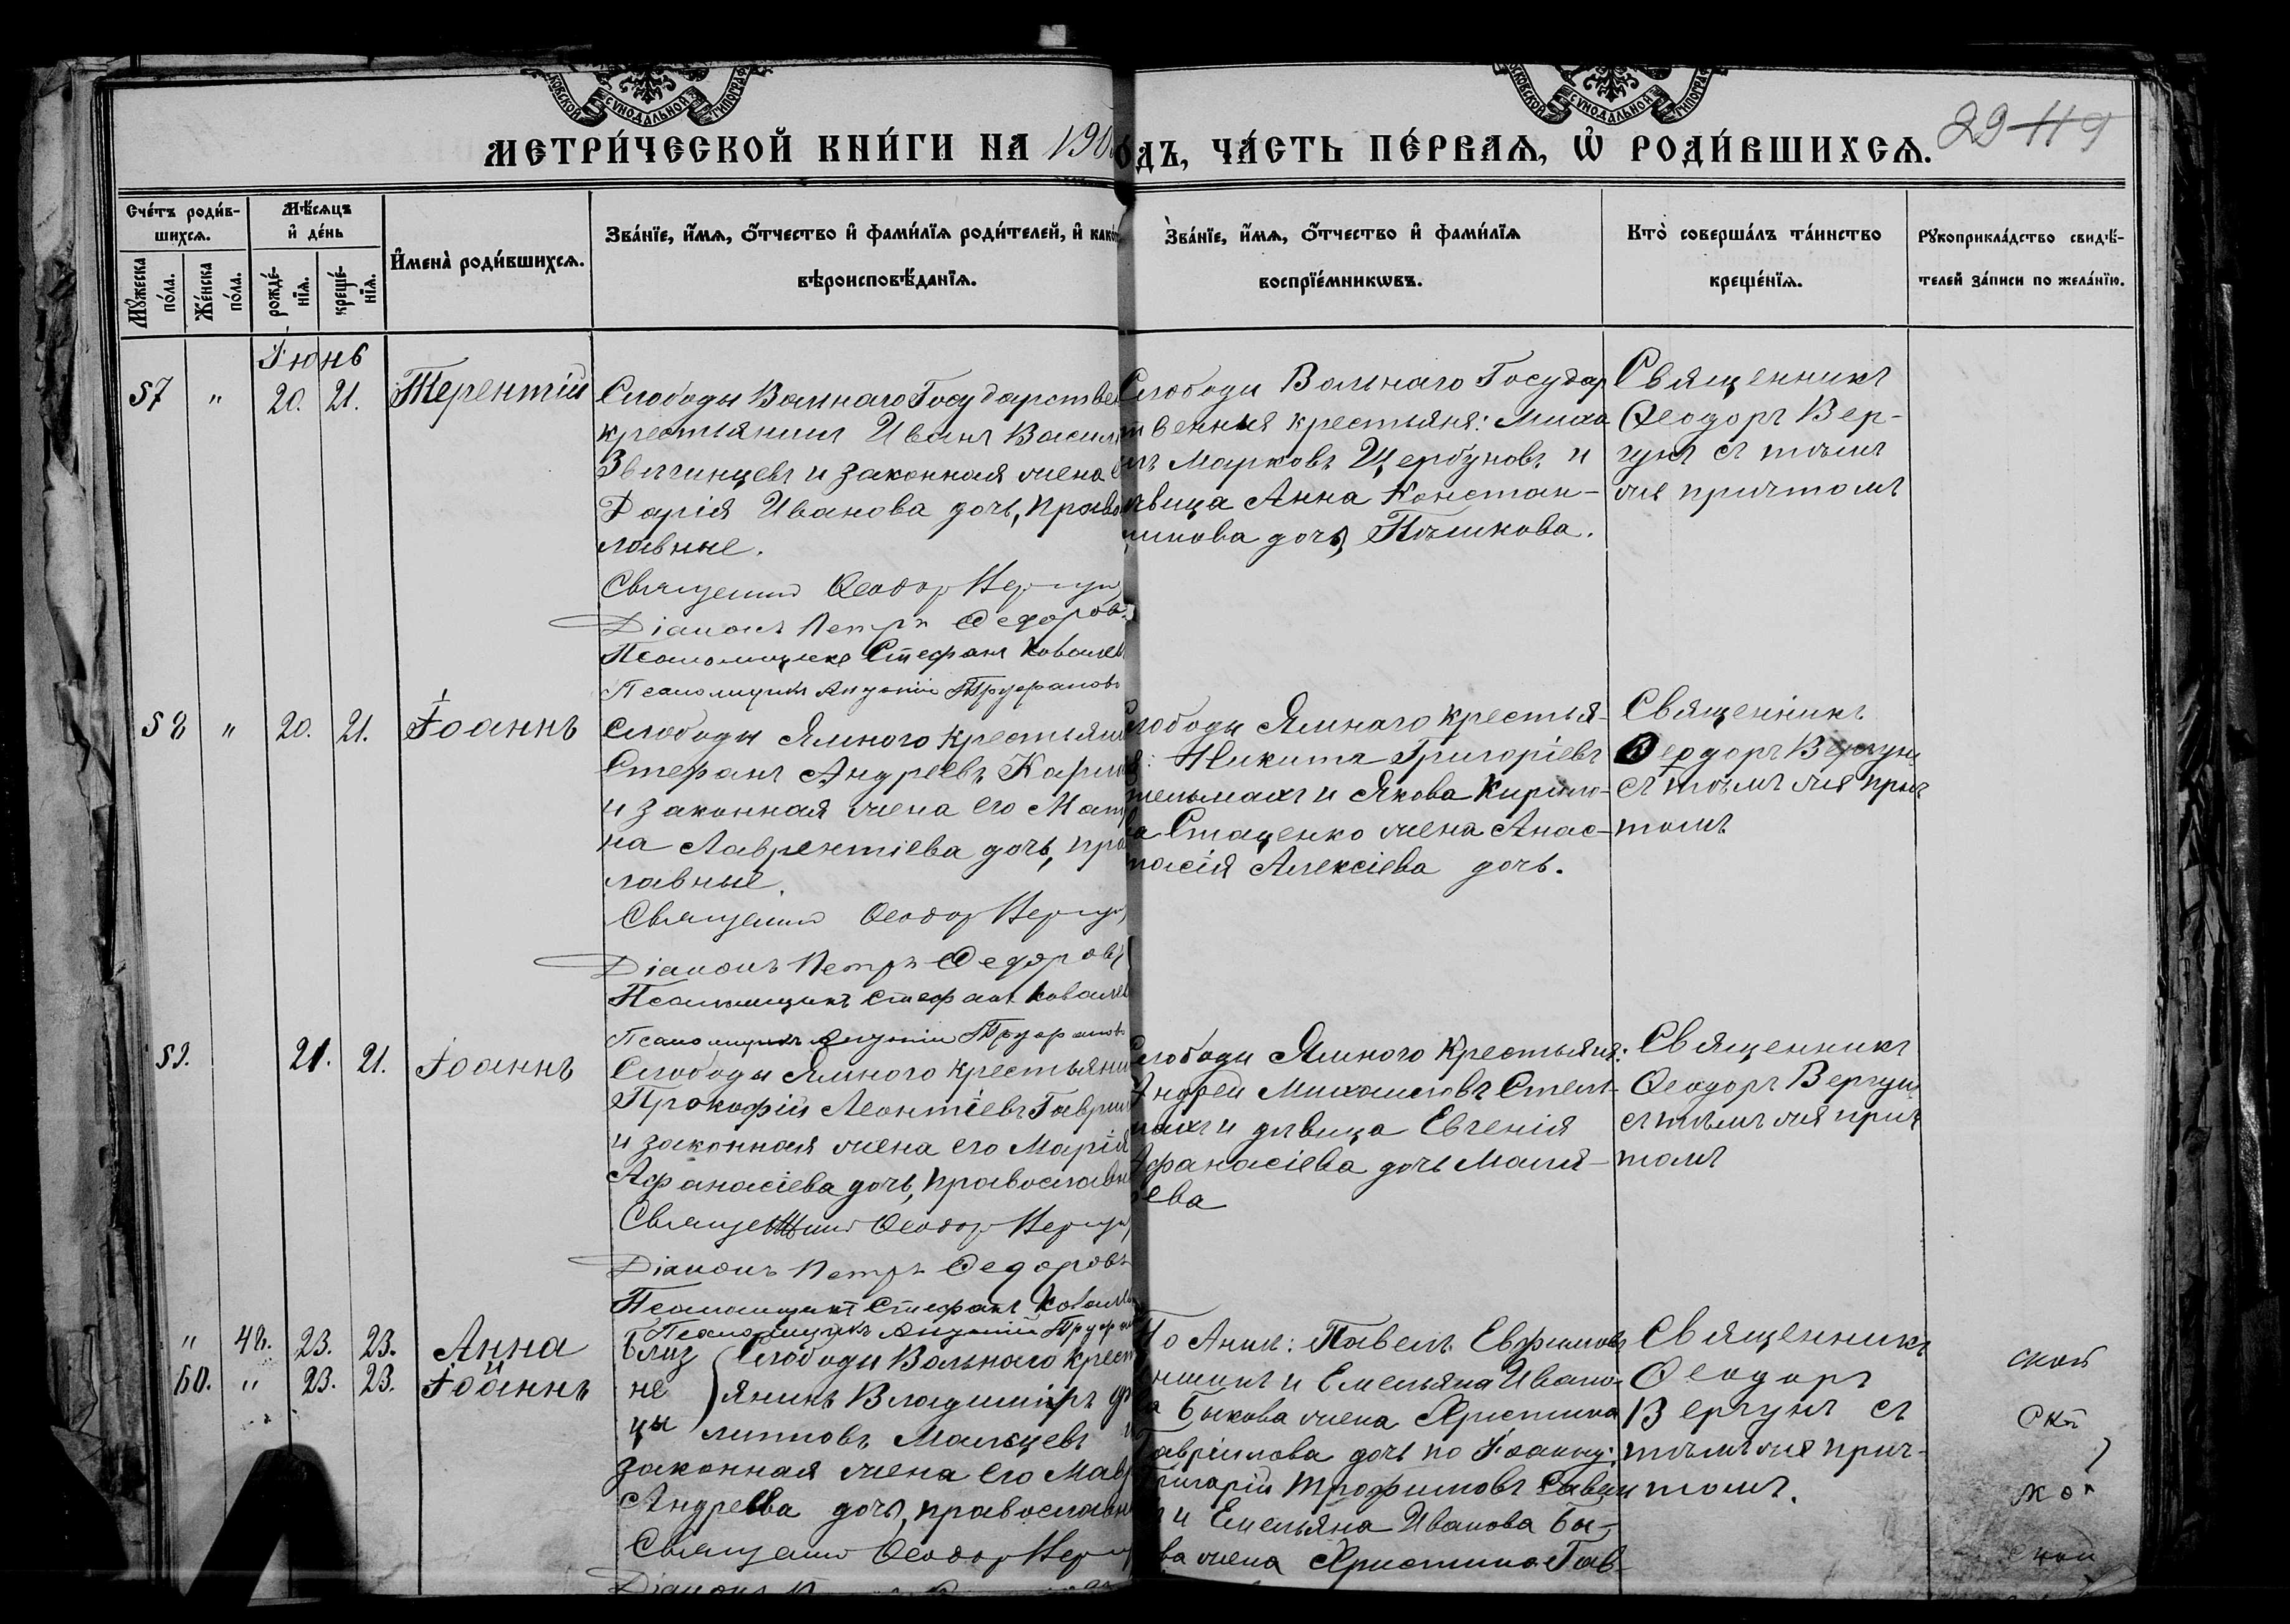 МОСКОВСКОЙ СѴНОДАЛЬНОЙ ТИПОГРАФ
МОСКОВСКОЙ СѴНОДАЛЬНОЙ ТИПОГРАФ
МЕТРИ́ЧЕСКОЙ КНИ́ГИ НА 190
ОДЪ, ЧА́СТЬ ПЕ́РВАѦ, Ѡ҆ РОДИ́ВШИХСѦ.
29 119
Сче́тъ роди́в-
шихсѧ.
Мꙋ́жеска
по́ла.
Же́нска
по́ла.
Мѣ́сѧцъ
и҆ де́нь
рожде́-
нїѧ.
креще́-
нїѧ.
И҆мена̀ роди́вшихсѧ.
Зва́нїе, и҆́мѧ, ѻ҆́тчество и҆ фами́лїѧ роди́телей, и҆ како́г
вѣроисповѣ́данїѧ.
Зва́нїе, и҆́мѧ, ѻ҆́тчество и҆ фами́лїѧ
воспрїе́мникѡвъ.
Кто̀ соверша́лъ та́инство
креще́нїѧ.
Рꙋкоприкла́дство свидѣ́-
телей за́писи по жела́нїю.
Іюнь
57 " 20. 21. Терентій
Слободы Вольнаго Государствен
крестьянинъ Иванъ Васил
Звягинцевъ и законная жена е
Дарія Иванова дочь, право
лавные.
Священник Ѳеодор Вергун
Діаконъ Петръ Ѳедоров
Псаломщикъ Стефанъ Ковалев
Псаломщикъ Андрей Труфановъ
Слободы Вольнаго Государ
твенныя крестьяне: Миха
лъ Марковъ Щербуновъ и
ѣвица Анна Констан-
тинова дочь,
Священникъ
Ѳеодоръ Вер-
гунъ съ тѣмъ
же причтомъ
58 " 20. 21. Іоаннъ
Слободы Ямного крестьянин
Стефанъ Андреевъ
и законная жена его Матр
на Лаврентіева дочь, пра
лавные.
Священник Ѳеодор Вергун
Діаконъ Петръ Ѳедоровъ
Псаломщикъ Стефанъ Ковалев
Псаломщикъ Андрей Труфановъ
Слободы Ямнаго крестья-
: Никита Григоріевъ
тельмахъ и Якова Кирило-
ва Стаценко жена Анас-
тасія Алексіева дочь.
Священникъ
Ѳеодоръ Вергунъ
съ тѣмъ же прич
томъ
59. 21. 21. Іоаннъ
Слободы Ямного крестьянин
Прокофій Леонтіевъ Гаврил
и законная жена его Марія
Афанасіева дочь, православн
Священник Ѳеодор Вергун
Діаконъ Петръ Ѳедоровъ
Псаломщикъ Стефанъ Ковалев
Псаломщикъ Андрей Труфан
Слободы Ямного крестьяне:
Андрей Михаиловъ Стель-
махъ и дѣвица Евгенія
Афанасіева дочь Маля-
рева
Священникъ
Ѳеодоръ Вергунъ
съ тѣмъ же прич
томъ
" 48. 23. 23. Анна
60. " 23. 23. Іоаннъ
Близ
не
цы
Слободы Вольнаго крест
янинъ Владиміръ Фи
липповъ Мальцевъ и
законная жена его Мавр
Андреева дочь, православн
Священник Ѳеодор Вергун
По Аннѣ: Павелъ Евфимовъ
и Емельяна Ивано-
ва Быкова жена Христина
Гавріилова дочь по Іоанну:
Григорій Трофимовъ
и Емельяна Иванова Бы-
ва жена Христина Гав-
Священникъ
Ѳеодоръ
Вергунъ съ
тѣмъ же прич-
томъ.
ской